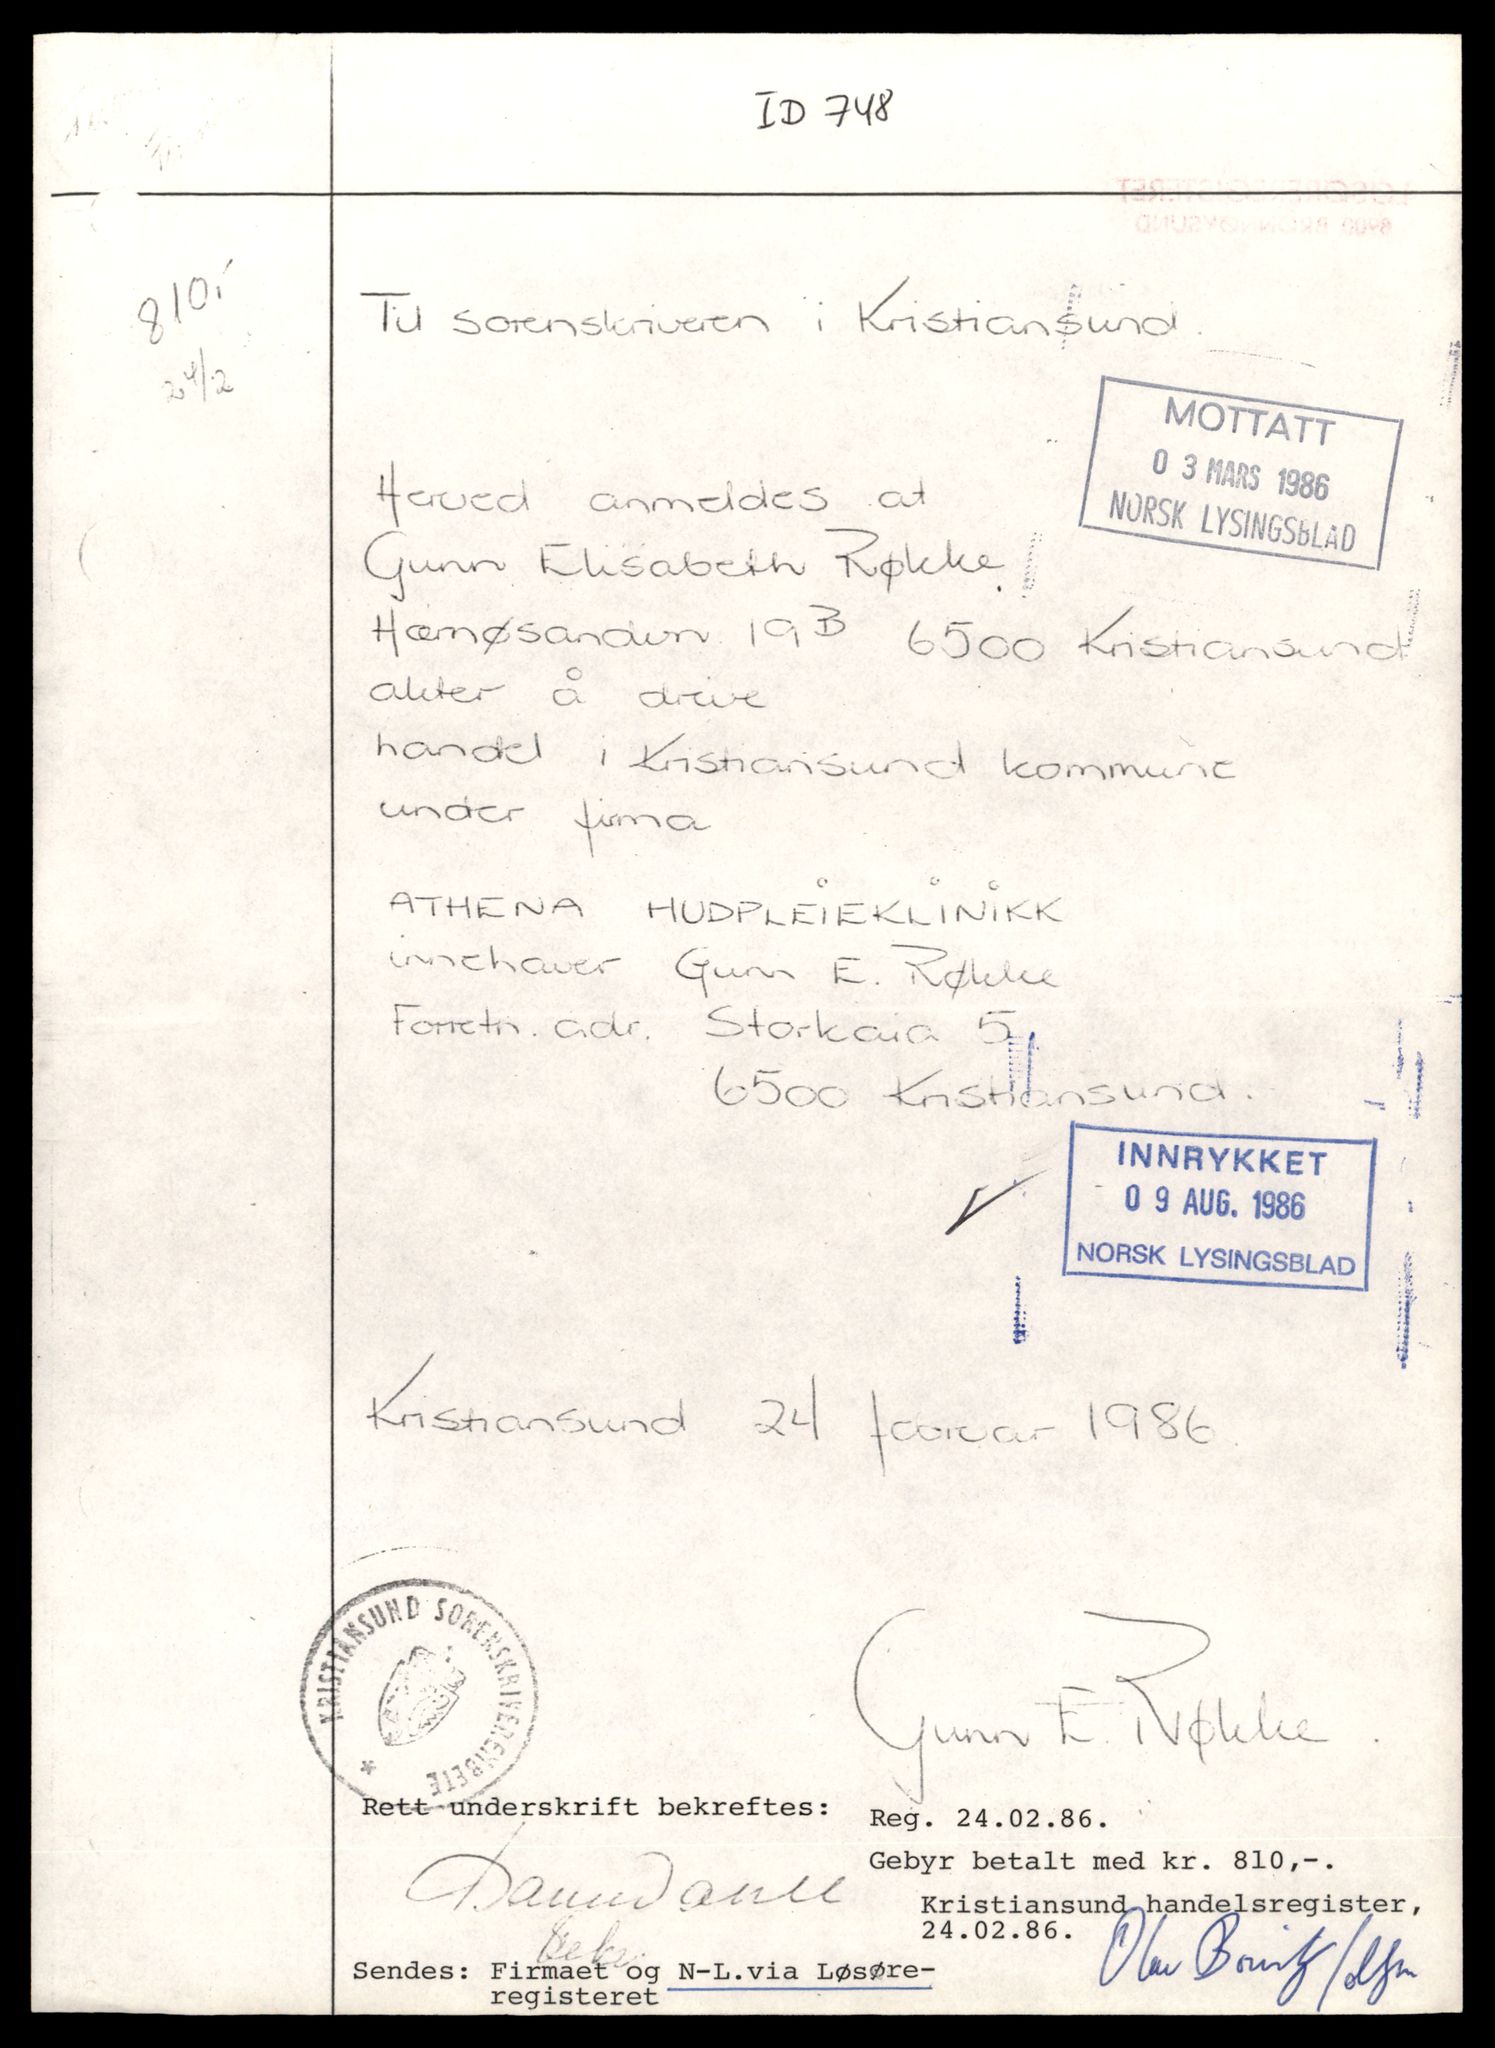 ID 748
LØSØREREGISTERET
8900 BRØNNØYSUND
810,-
24/2
Til sorenskriveren i Kristiansund.
MOTTATT
03 MARS 1986
NORSK LYSINGSBLAD
Herved anmeldes at
Gunn Elisabeth Røkke
Hærnøsandvn 19B 6500 Kristiansund
akter å drive
handel i Kristiansund kommune
under firma
ATHENA HUDPLEIEKLINIKK
innehaver Gunn E. Røkke
Forretn. adr. Storkaia 5
6500 Kristiansund.
INNRYKKET
09 AUG. 1986
NORSK LYSINGSBLAD
Kristiansund 24 februar 1986.
KRISTIANSUND SORENSKRIVEREMBETE
Gunn E. Røkke.
Rett underskrift bekreftes:
Reg. 24.02.86.
Gebyr betalt med kr. 810,-.
Kristiansund handelsregister,
24.02.86.
Sendes: Firmaet og N-L.via Løsøre-
registeret